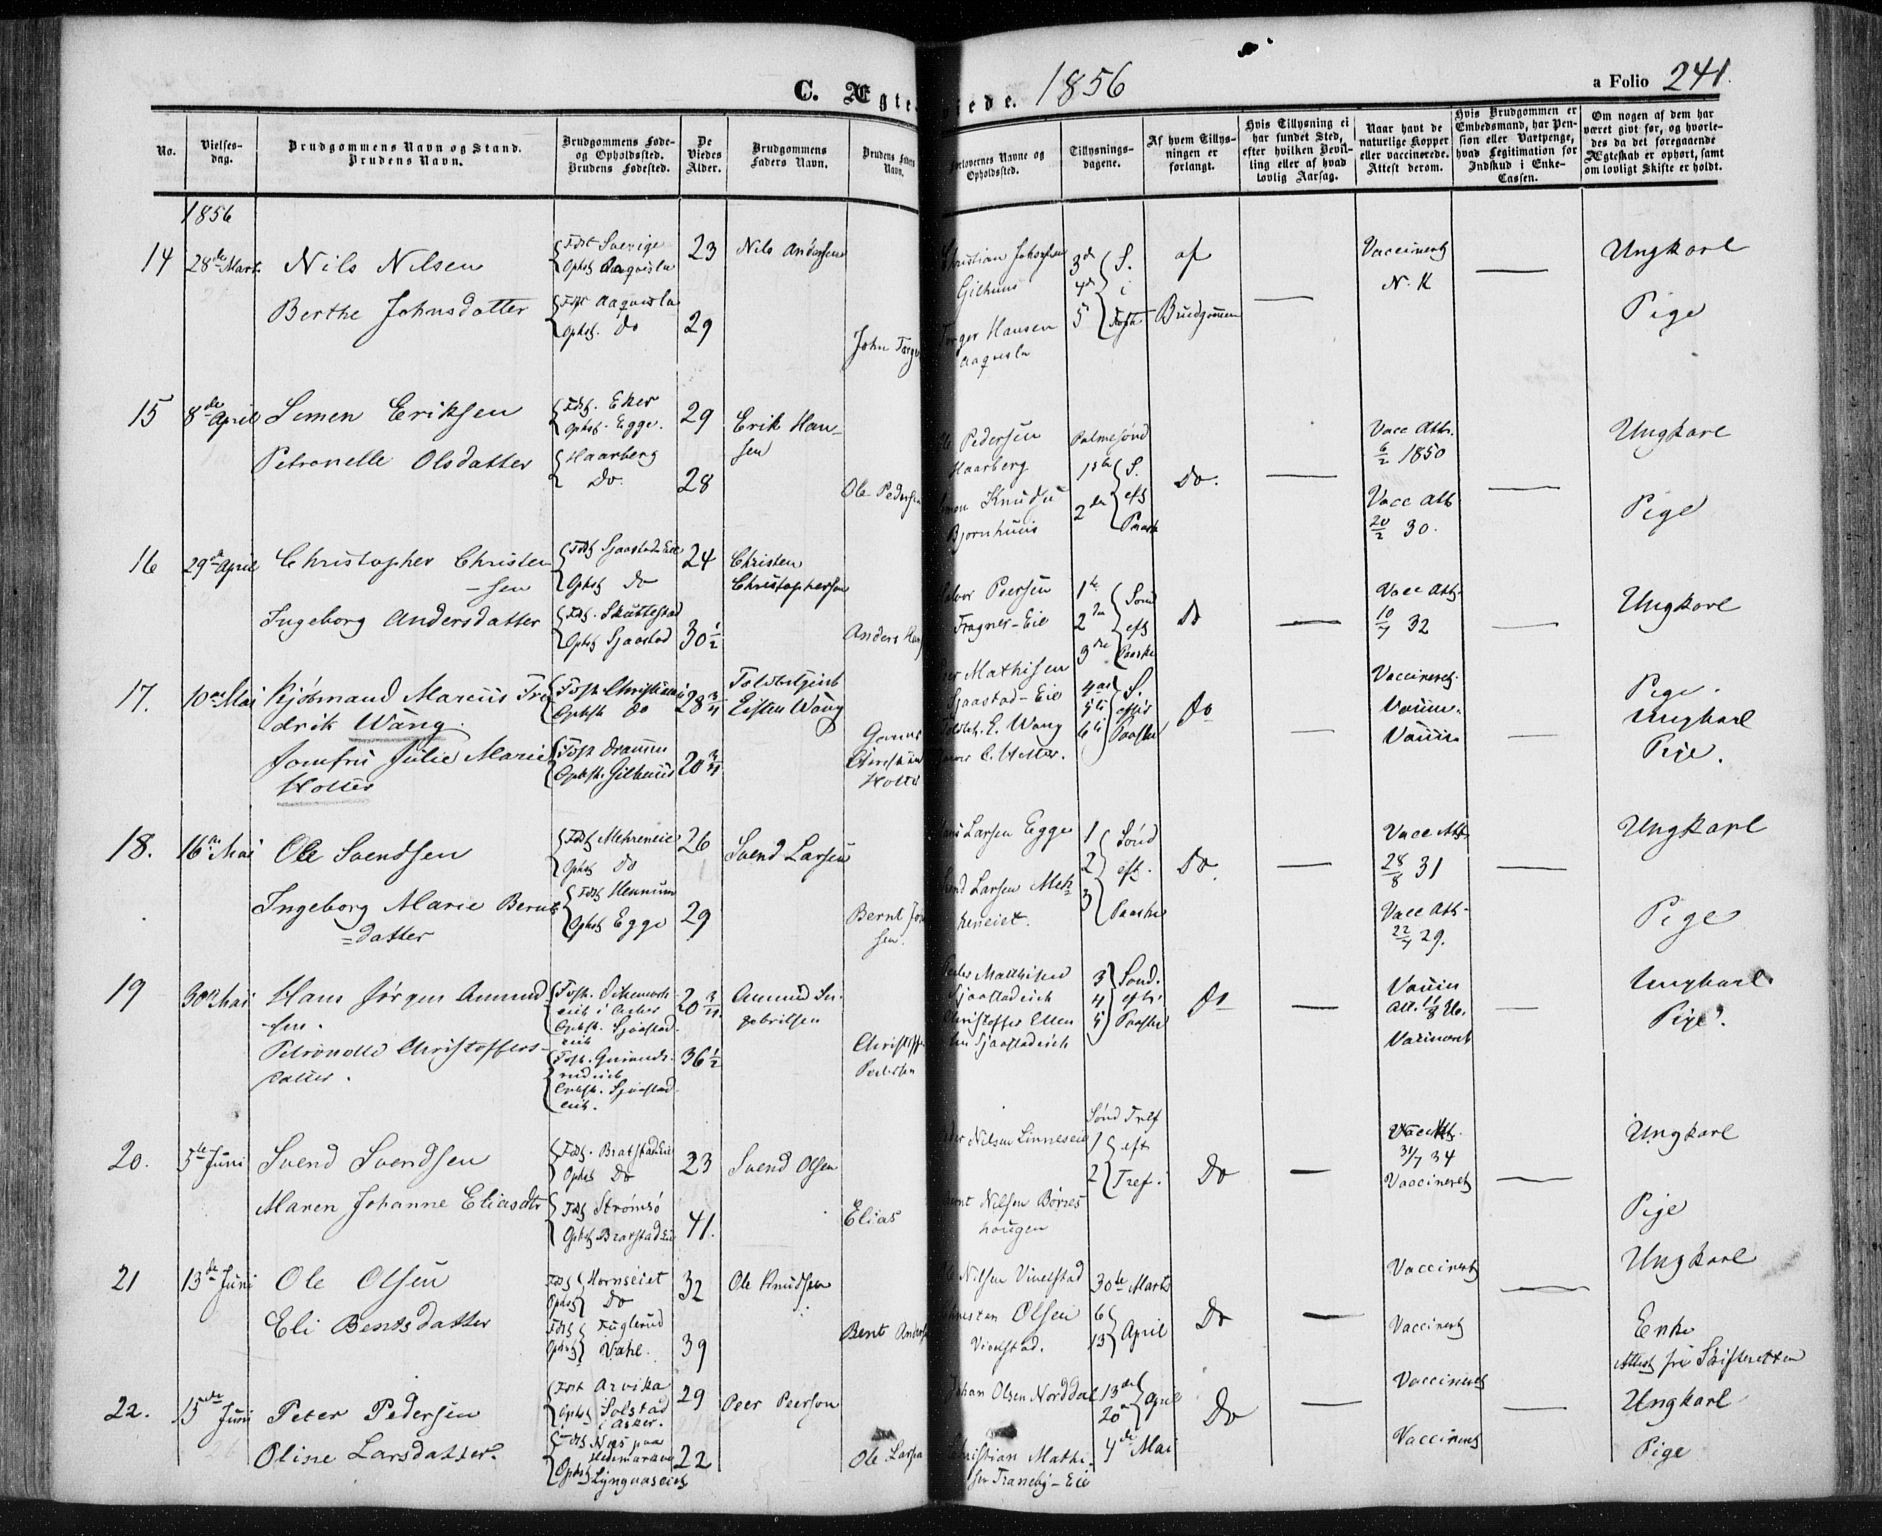 C. Ægte viede. 1856
a Folio 241.
No.
Vielses-
dag.
Brudgommens Navn og Stand.
Brudens Navn.
Brudgommens Føde-
og Opholdssted.
Brudens Fødested.
De
Viedes
Alder.
Brudgommens
Faders Navn.
Brudens Faders
Navn.
Forlovernes Navne og
Opholdssted.
Tillysnings-
dagene.
Af hvem Tillys-
ningen er
forlangt.
Hvis Tillysning ei
har fundet Sted,
efter hvilken Bevil-
ling eller af hvad
lovlig Aarsag.
Naar havt de
naturlige Kopper
eller vaccinerede.
Attest derom.
Hvis Brudgommen er
Embedsmand, har Pen-
sion eller Vartpenge,
hvad Legitimation for
Indskud i Enke-
Cassen.
Om nogen af dem har
været gift før, og hvorle-
des da det foregaaende
Ægteskab er ophørt, samt
om lovligt Skifte er holdt.
1856
14
28de Mart.
Nils Nilsen
Berthe Johnsdatter
Fdst Sverige
Fdst Aaqvisla
Ophst. Do
23
29
Nils Andersen
John
Gilhuus
Hansen
3de
4de
5
S.
i
af
Brudgommen
Vaccineret
N. K
Ungkarl
Pige
15
8de April
Simen Eriksen
Petronelle Olsdatter
Fdst. Eker
Ophst. Egge.
Haarberg
Do.
29
28
Erik Han-
sen
Ole Pedersen
Pedersen
Haarberg
Bjørnhuus
Palmesønd
1ste
2den
S.
eft
Paaske
Do.
Vacc Att.
6/2 1850
Vacc Att
20/2 30.
Ungkarl
Pige
16
29de April
Christopher Christen-
sen
Ingeborg Andersdatter
Fdst Sjaastad Eie
Ophst Do
Fdst. Skuttestad
Ophst Sjaastad
24
30 1/2
Christen
Christophersen
Anders
Peersen
Eie
Mathisen
Sjaastad-Eie
1ste
2den
3die
Sønd
eft
Paaske
Do
Vacc Att.
10/7 32
Vaccineret.
Ungkarl
Pige.
17.
10de Mai
Kjøbmand Marcus Fre-
drik Wang.
Jomfru Julie Marie
Holter
Fdst. Christiania
Ophst. do
Fdst. Drammen
Ophst. Gilhuus
28 3/4
20 3/4
Eisten Wang
Christian
Holter
E. Wang
4de
5te
6te
S.
efter
Paaske
do
Vaccin.
Vaccin
Ungkarl
Pige.
18.
16de Mai
Ole Svendsen
Ingeborg Marie Bernts-
datter
Ophst do
Fdst Hennum
Ophst Egge
26
29
Svend Larsen
Bernt
sen.
Larsen Egge
Larsen
1
2
3
Sønd
eft.
Paaske
Do.
Vacc Att
28/8 31
Vacc Att.
22/7 29.
Ungkarl
Pige
19
30te Mai
Hans Jørgen Amund-
sen.
Petronelle Christoffers-
datter.
Ophst. Sjaastad-
eie
Ophst. Sjaastad-
eie.
20 3/4
36 1/2
Amund In-
gebritsen
Pedersen
Peder Mathisen
Sjaastadeie
Christoffer
Sjaastadeie
3
4
5
Sønd.
eft.
Paaske
do
Vaccin
Vaccineret
Ungkarl.
Pige.
20.
5te Juni
Svend Svendsen
Maren Johanne Eliasdtr
Ophst Do
Fdst Strømsø
23
41.
Svend Olsen
Elias
Nilsen Linneseie
Nilsen Børres
hougen
Sønd Tref
1
2
eft
Tref.
Do
Vacc Att.
31/7 34
Vaccineret
Ungkarl
Pige
21
13de Juni
Ole Olsen
Eli Bentsdatter
Fdst
Ophst
Hornseiet
Do
Fdst
Ophst
Fuglerud
Vahl.
32
39
Ole Knudsen
Bent
Nilsen Vivelstad
Olsen
Vivelstad.
30te Marts
6
13
April
Do
Vaccineret
Vaccineret
Ungkarl
Enke
Attest fra Skifteretten
22.
15de Juni
Peter Pedersen
Oline Larsdatter.
Fdst Arvika
Ophst Solstad
i Asker.
Fdst Næs paa
Hedemarken
Ophst
29
22
Peer Peerson
Ole Larsen
Johan Olsen Norddal
Christian Mathi-
sen Traneby-Eie
13de
20de
April
4de Mai
Do
Vaccineret
Vaccineret
Ungkarl
Pige